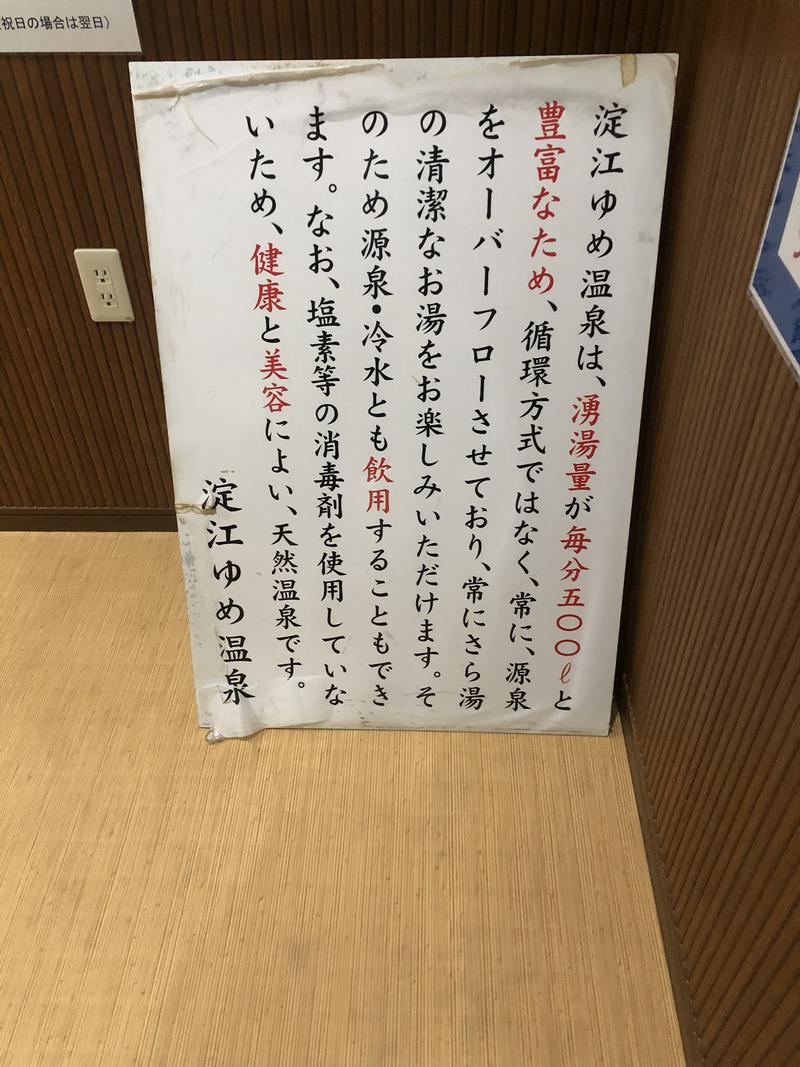 祝日の場合は翌日）
淀江ゆめ温泉は、湧湯量が毎分五〇〇ℓと
豊富なため、循環方式ではなく、常に、源泉
をオーバーフローさせており、常にさら湯
の清潔なお湯をお楽しみいただけます。そ
のため源泉・冷水とも飲用することもでき
ます。なお、塩素等の消毒剤を使用していな
いため、健康と美容によい、天然温泉です。
淀江ゆめ温泉